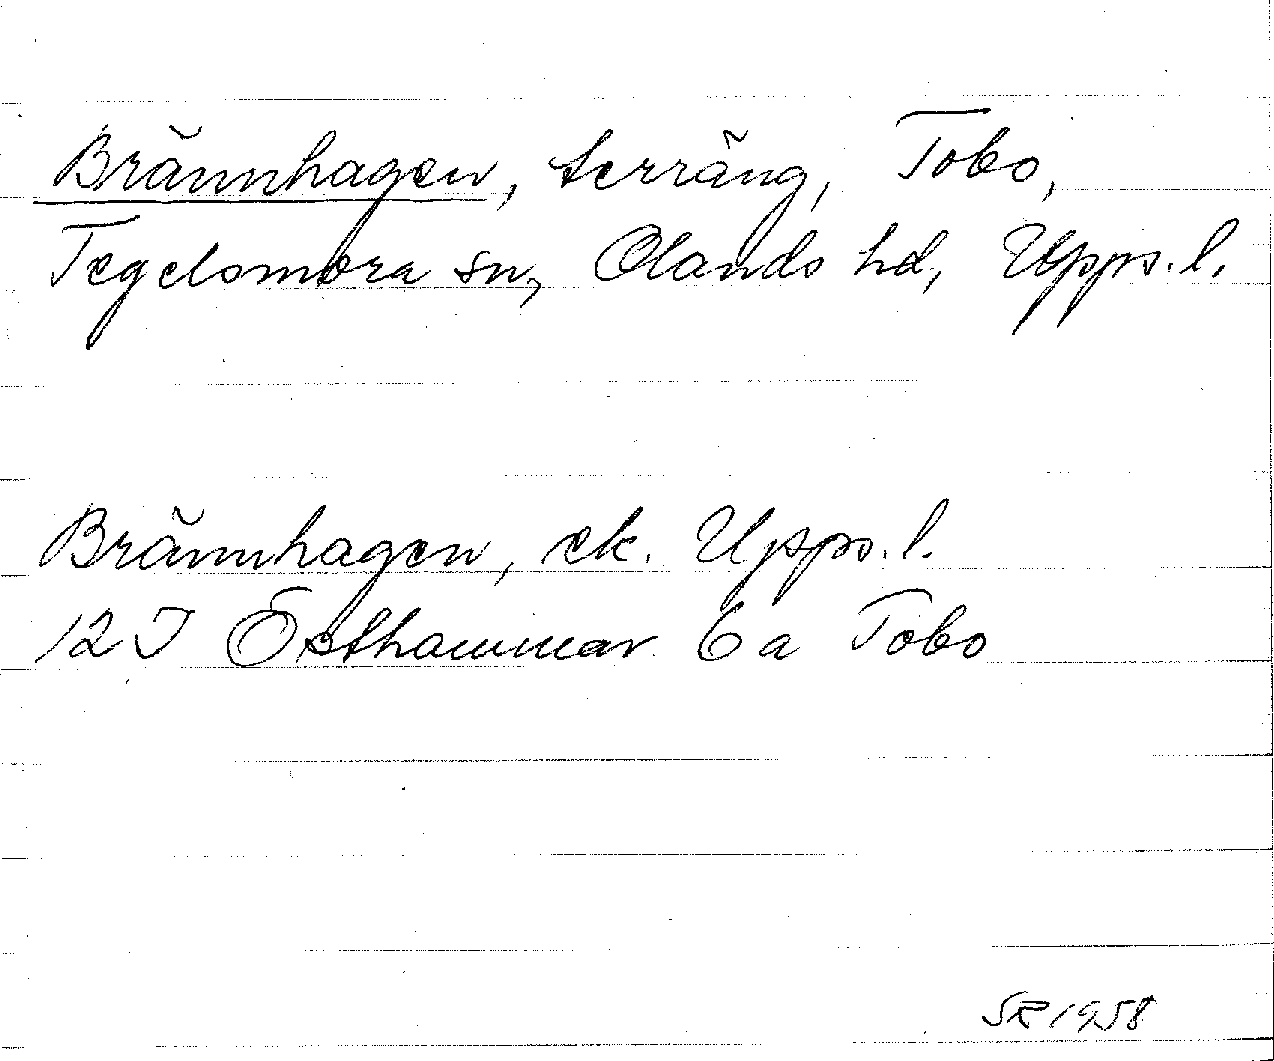 Brännhagen, terräng, Tobo,
Tegelsmora sn, Olands hd, Upps. l.
Brännhagen, ek. Upps. l.
12 I Östhammar 6 a Tobo
SR 1958